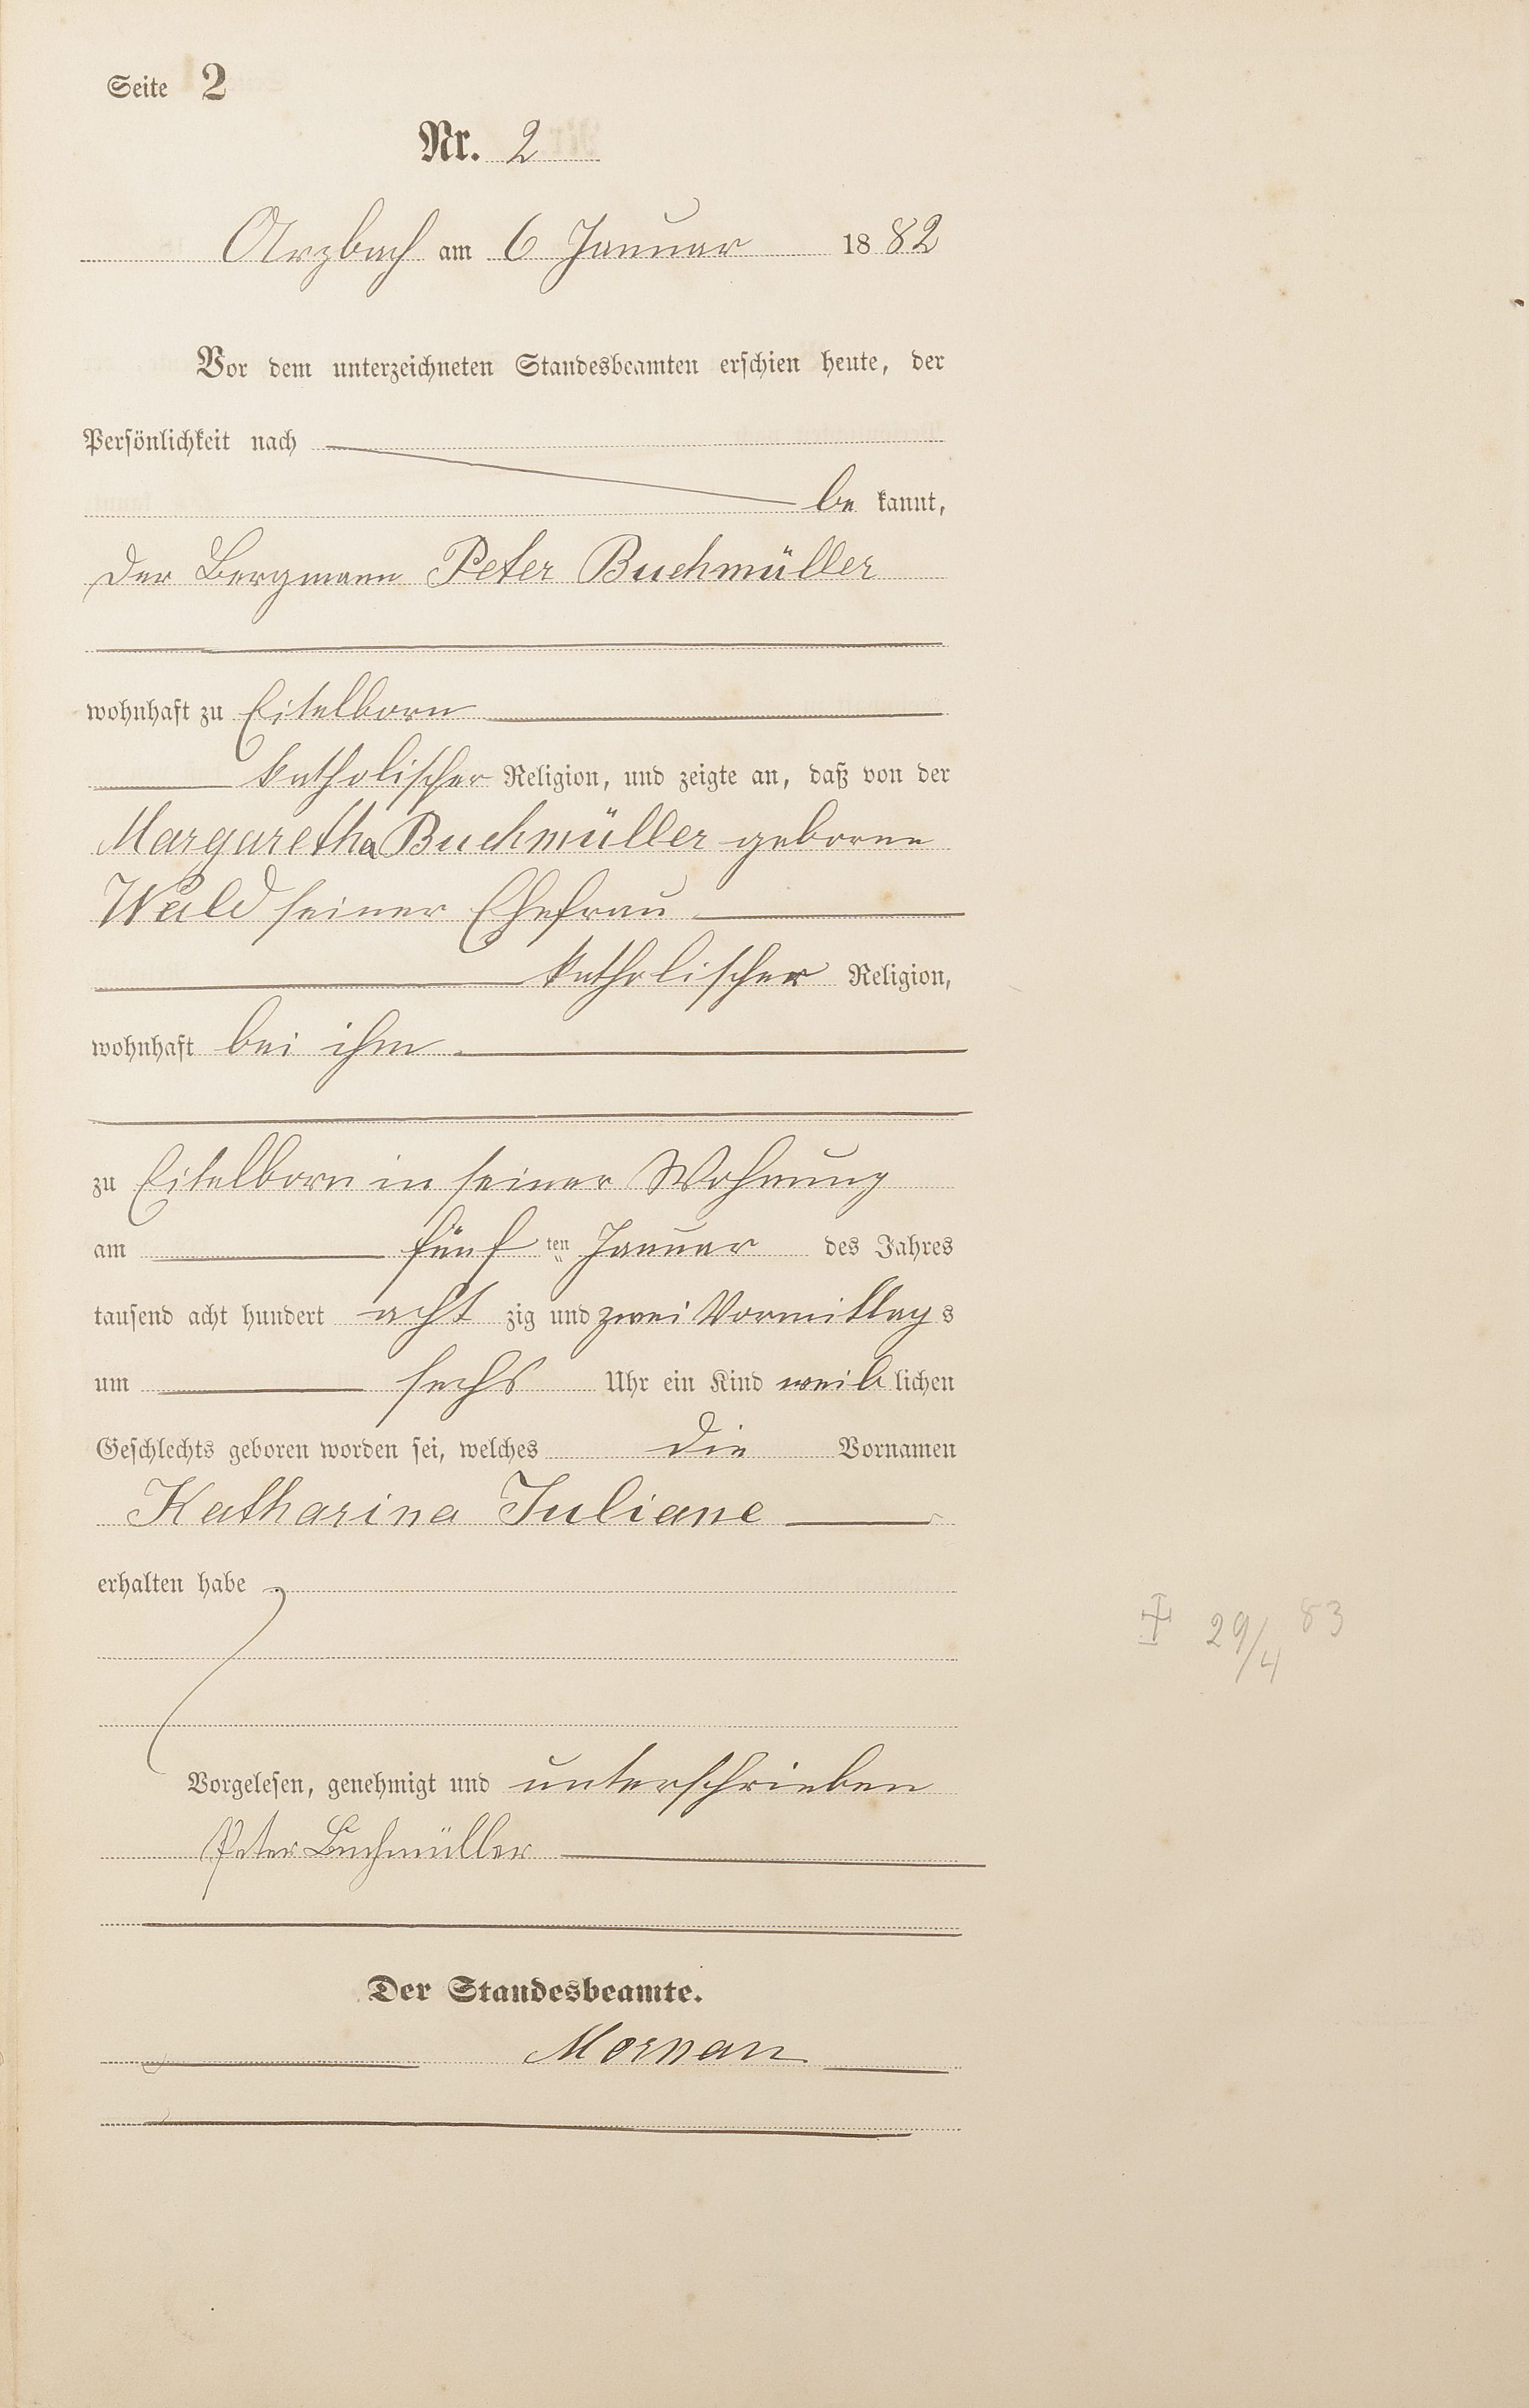 Seite 2
Nr. 2
Arzbach am 6 Januar 1882
Vor dem unterzeichneten Standesbeamten erschien heute, der
Persönlichkeit nach
be kannt,
der Bergmann Peter Buchmüller
wohnhaft zu Eitelborn
katholischer Religion, und zeigte an, daß von der
Margaretha Buchmüller geborne
Wald seiner Ehefrau
katholischer Religion,
wohnhaft bei ihm
zu Eitelborn in seiner Wohnung
am fünf ten Januar des Jahres
tausend acht hundert acht zig und zwei Vormittags
um sechs Uhr ein Kind weiblichen
Geschlechts geboren worden sei, welches die Vornamen
Katharina Juliane
erhalten habe
✝ 29/4 83
Vorgelesen, genehmigt und unterschrieben
Peter Buchmüller
Der Standesbeamte.